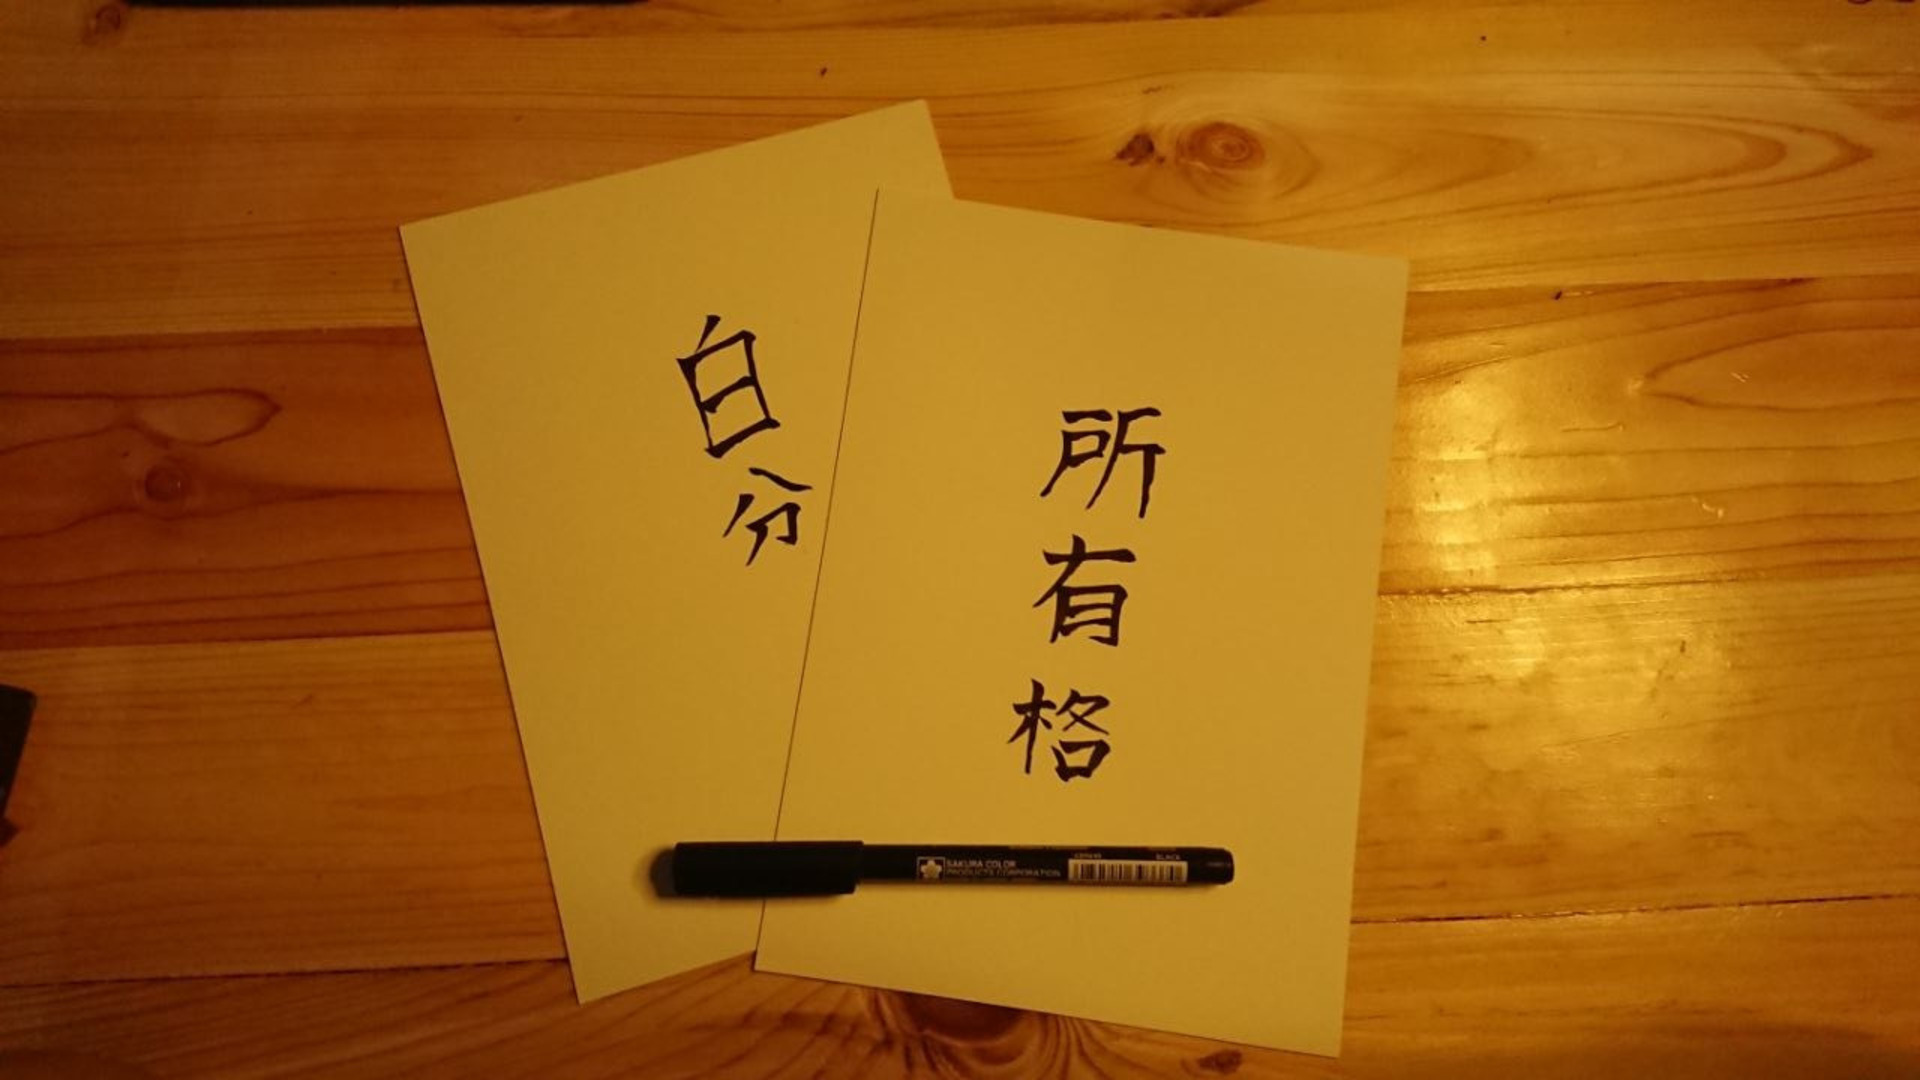 白分
所有格
SAKURA COLOR
PRODUCTS CORPORATION
BLACK